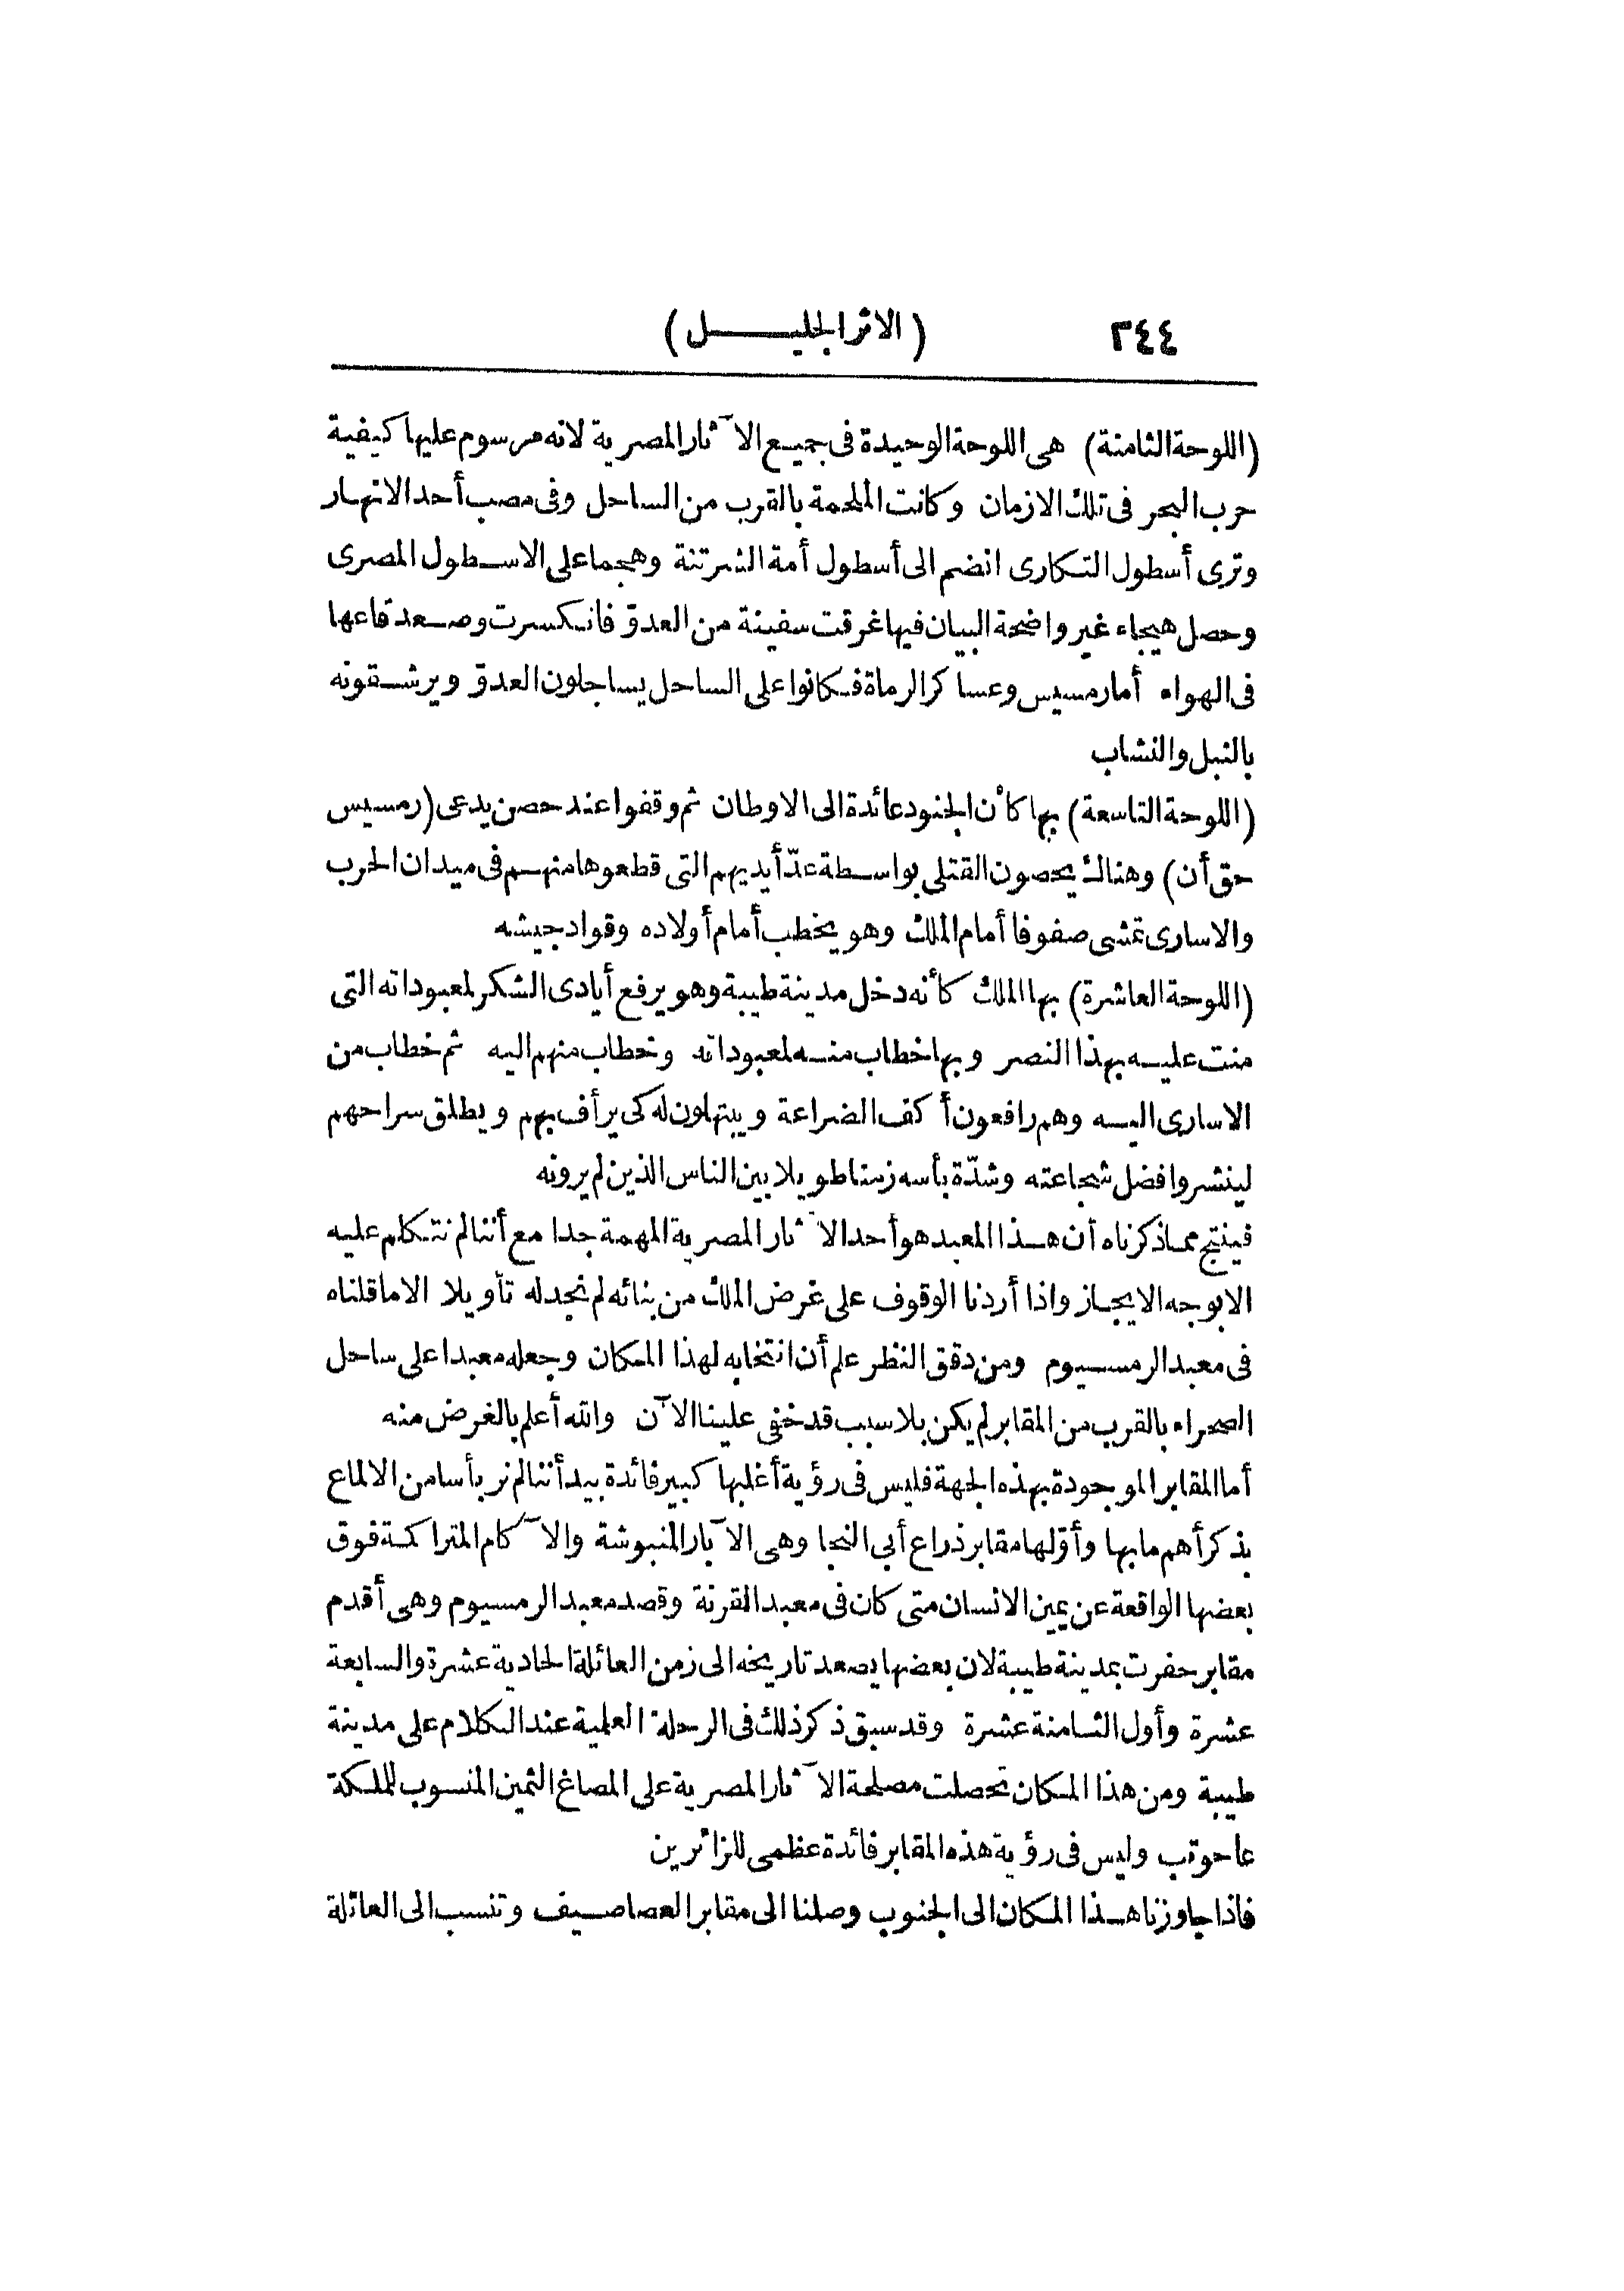 ٣٤٤ (الاثر الجليـــــل)
(اللوحة الثامنة) هى اللوحة الوحيدة فى جميع الآثار المصرية لانه مرسوم عليها كيفية
حرب البحر فى تلك الازمان وكانت الملحمة بالقرب من الساحل وفى مصب أحد الانهار
وترى أسطول التكارى انضم الى أسطول أمة الشرتنة وهجما على الاسطول المصرى
وحصل هيجاء غير واضحة البيان فيها غرقت سفينة من العدوّ فانكسرت وصعد قاعها
فى الهواء أما رمسيس وعساكر الرماة فكانوا على الساحل يساجلون العدوّ ويرشقونه
بالنبل والنشاب
(اللوحة التاسعة) بها كأن الجنود عائدة الى الاوطان ثم وقفوا عند حصن يدعى (رمسيس
حق أن) وهناك يحصون القتلى بواسطة عدّ أيديهم التى قطعوها منهم فى ميدان الحرب
والاسارى تمشى صفوفا أمام الملك وهو يخطب أمام أولاده وقواد جيشه
(اللوحة العاشرة) بها الملك كأنه دخل مدينة طيبة وهو يرفع أيادى الشكر لمعبوداته التى
منت عليه بهذا النصر وبها خطاب منه لمعبوداته وخطاب منهم اليه ثم خطاب من
الاسارى اليه وهم رافعون أكف الضراعة ويبتهلون له كى يرأف بهم ويطلق سراحهم
لينشروا فضل شجاعته وشدّة بأسه زمنا طويلا بين الناس الذين لم يرونه
فينتج مما ذكرناه أن هذا المعبد هو أحد الآثار المصرية المهمة جدا مع أننا لم نتكلم عليه
الا بوجه الايجاز واذا أردنا الوقوف على غرض الملك من بنائه لم نجد له تأويلا الا ما قلناه
فى معبد الرمسيوم ومن دقق النظر علم أن انتخابه لهذا المكان وجعله معبدا على ساحل
الصحراء بالقرب من المقابر لم يكن بلا سبب قد خفى علينا الآن والله أعلم بالغرض منه
أما المقابر الموجودة بهذه الجهة فليس فى رؤية أغلبها كبير فائدة بيد أننا لم نر بأسا من الالماع
بذكر أهم ما بها وأوّلها مقابر ذراع أبى النجا وهى الآبار المنبوشة والآكام المتراكمة فوق
بعضها الواقعة عن يمين الانسان متى كان فى معبد القرنة وقصد معبد الرمسيوم وهى أقدم
مقابر حفرت بمدينة طيبة لان بعضها يصعد تاريخه الى زمن العائلة الحادية عشرة والسابعة
عشرة وأول الثامنة عشرة وقد سبق ذكر ذلك فى الرحلة العلمية عند الكلام على مدينة
طيبة ومن هذا المكان تحصلت مصلحة الآثار المصرية على المصاغ الثمين المنسوب للملكة
عاحوتب وليس فى رؤية هذه المقابر فائدة عظمى للزائرين
فاذا جاوزنا هذا المكان الى الجنوب وصلنا الى مقابر العصاصيف وتنسب الى العائلة